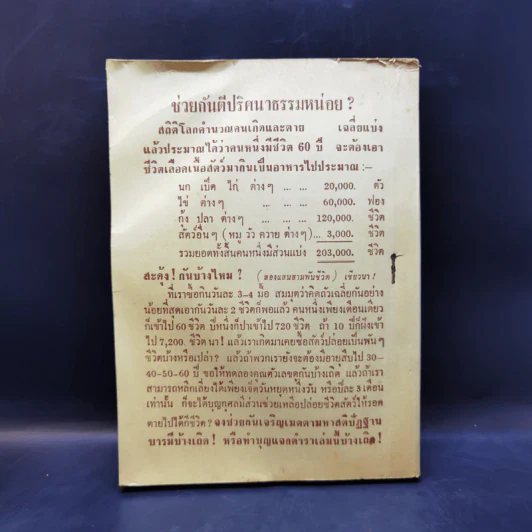 ช่วยกันตีปริศนาธรรมหน่อย ?
สถิติโลกคำนวณคนเกิดและตาย เฉลี่ยแบ่ง
แล้วประมาณได้ว่าคนหนึ่งมีชีวิต 60 ปี จะต้องเอา
ชีวิตเลือดเนื้อสัตว์มากินเป็นอาหารไปประมาณ :-
นก เป็ด ไก่ ต่างๆ ... ... 20,000. ตัว
ไข่ ต่างๆ ... ... ... 60,000. ฟอง
กุ้ง ปลา ต่างๆ ... ... 120,000. ชีวิต
สัตว์อื่นๆ (หมู วัว ควาย ต่างๆ)... 3,000. ชีวิต
รวมยอดทั้งสิ้นคนหนึ่งมีส่วนแบ่ง 203,000. ชีวิต
สะดุ้ง! กันบ้างไหม ? (สองแสนสามพันชีวิต) เชียวนา !
ที่เราซื้อกินวันละ 3-4 มื้อ สมมุติว่าคิดถัวเฉลี่ยกันอย่าง
น้อยที่สุดเอากันวันละ 2 ชีวิตก็พอแล้ว คนหนึ่งเพียงเดือนเดียว
ก็เข้าไป 60 ชีวิต ปีหนึ่งก็ปาเข้าไป 720 ชีวิต ถ้า 10 ปีก็ผึงเข้า
ไป 7,200. ชีวิตนา ! แล้วเราเกิดมาเคยซื้อสัตว์ปล่อยเป็นพันๆ
ชีวิตบ้างหรือเปล่า ? แล้วถ้าพวกเรายังจะต้องมีอายุสืบไป 30-
40-50-60 ปี ขอให้ทดลองคูณตัวเลขดูกันบ้างเถิด แล้วถ้าเรา
สามารถหลีกเลี่ยงได้เพียงเจ็ดวันหยุดหนึ่งวัน หรือปีละ 3 เดือน
เท่านั้น ก็จะได้บุญกุศลมีส่วนช่วยเหลือปล่อยชีวิตสัตว์ให้รอด
ตายไปได้กี่ชีวิต ? จงช่วยกันเจริญเมตตามหาสติปัฏฐาน
บารมีบ้างเถิด ! หรือทำบุญแจกตำราเล่มนี้บ้างเถิด !